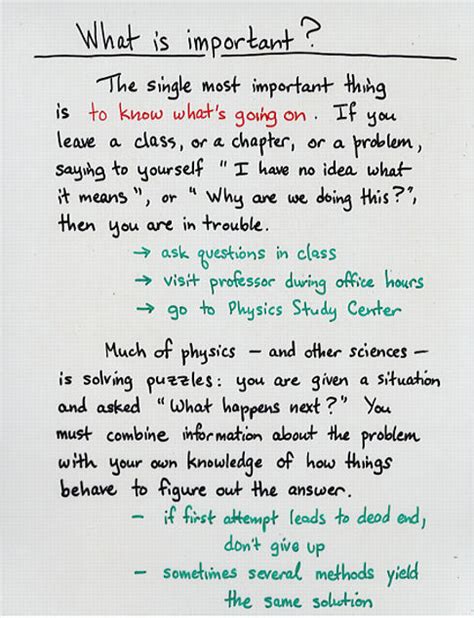 What is important?
The single most important thing
is to know what's going on. If you
leave a class, or a chapter, or a problem,
saying to yourself "I have no idea what
it means", or "Why are we doing this?",
then you are in trouble.
→ ask questions in class
→ visit professor during office hours
→ go to Physics Study Center
Much of physics – and other sciences –
is solving puzzles: you are given a situation
and asked "What happens next?" You
must combine information about the problem
with your own knowledge of how things
behave to figure out the answer.
– if first attempt leads to dead end,
don't give up
– sometimes several methods yield
the same solution